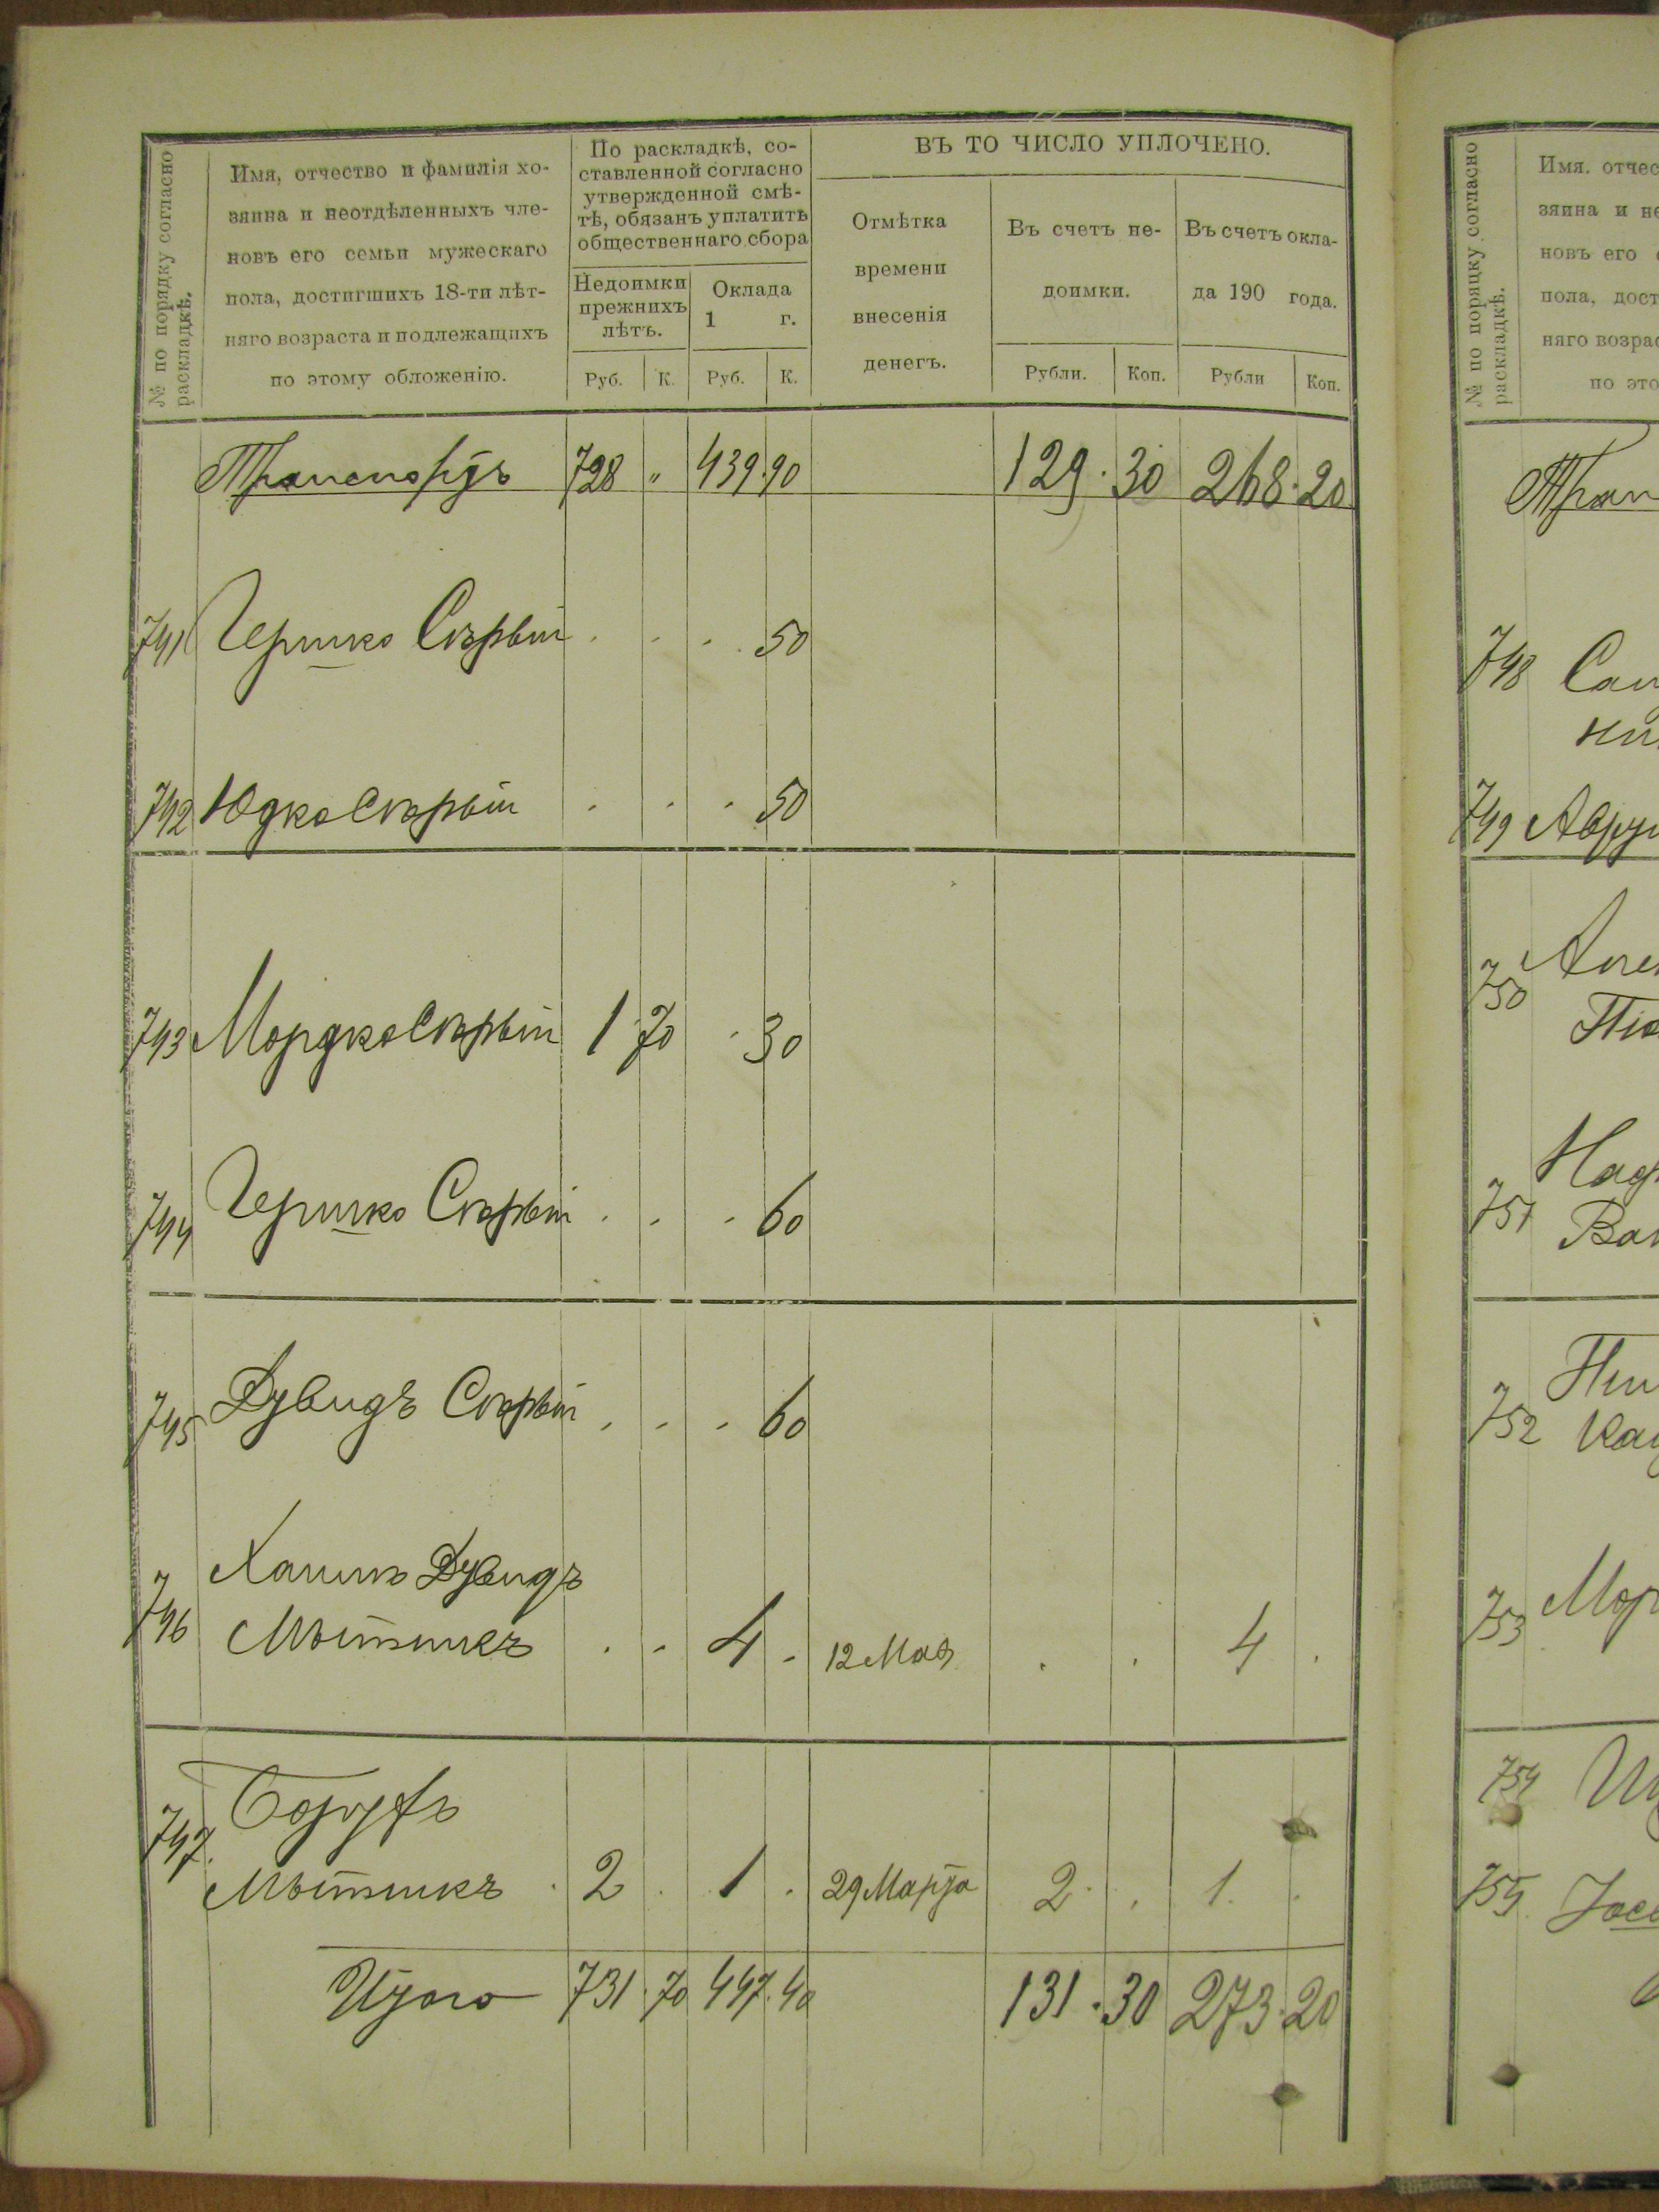 № по порядку согласно раскладкѣ.
Имя, отчество и фамилія хо-
зяина и неотдѣленныхъ чле-
новъ его семьи мужескаго
пола, достигшихъ 18-ти лѣт-
няго возраста и подлежащихъ
по этому обложенію.
По раскладкѣ, со-
ставленной согласно
утвержденной смѣ-
тѣ, обязанъ уплатить
общественнаго сбора
Недоимки
прежнихъ
лѣтъ.
Оклада
1 г.
Руб. К. Руб. К.
ВЪ ТО ЧИСЛО УПЛОЧЕНО.
Отмѣтка
времени
внесенія
денегъ.
Въ счетъ не-
доимки.
Въ счетъ окла-
да 190 года.
Рубли. Коп. Рубли Коп.
Транспортъ 728 " 439.90 129.30 268.20
741 Гершко Скрый . . . 50
742 Юдко Скрый . . . 50
743 Мордко Скрый 1 70 . 30
744 Гершко Скрый . . . 60
745 Дувидъ Скрый . . . 60
746 Хаимъ Дувидъ
Мытникъ . . 4 . 12 Мая . . 4 .
747. Борухъ
Мытникъ . 2 . 1 . 29 Марта 2 . . 1 .
Итого 731.70 447.40 131.30 273.20
№ по порядку согласно раскладкѣ.
Имя. отчес
зяина и не
новъ его
пола, дост
няго возрас
по это
Тран
748 Сам
749 Авру
750
751
Вай
752
753 Мор
754
755